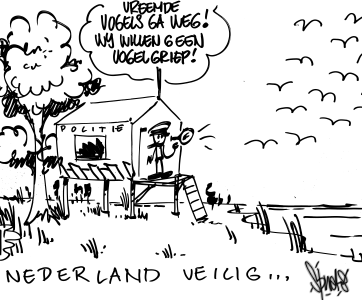 VREEMDE
VOGELS GA WEG!
WIJ WILLEN GEEN
VOGELGRIEP!
POLITIE
NEDERLAND VEILIG...